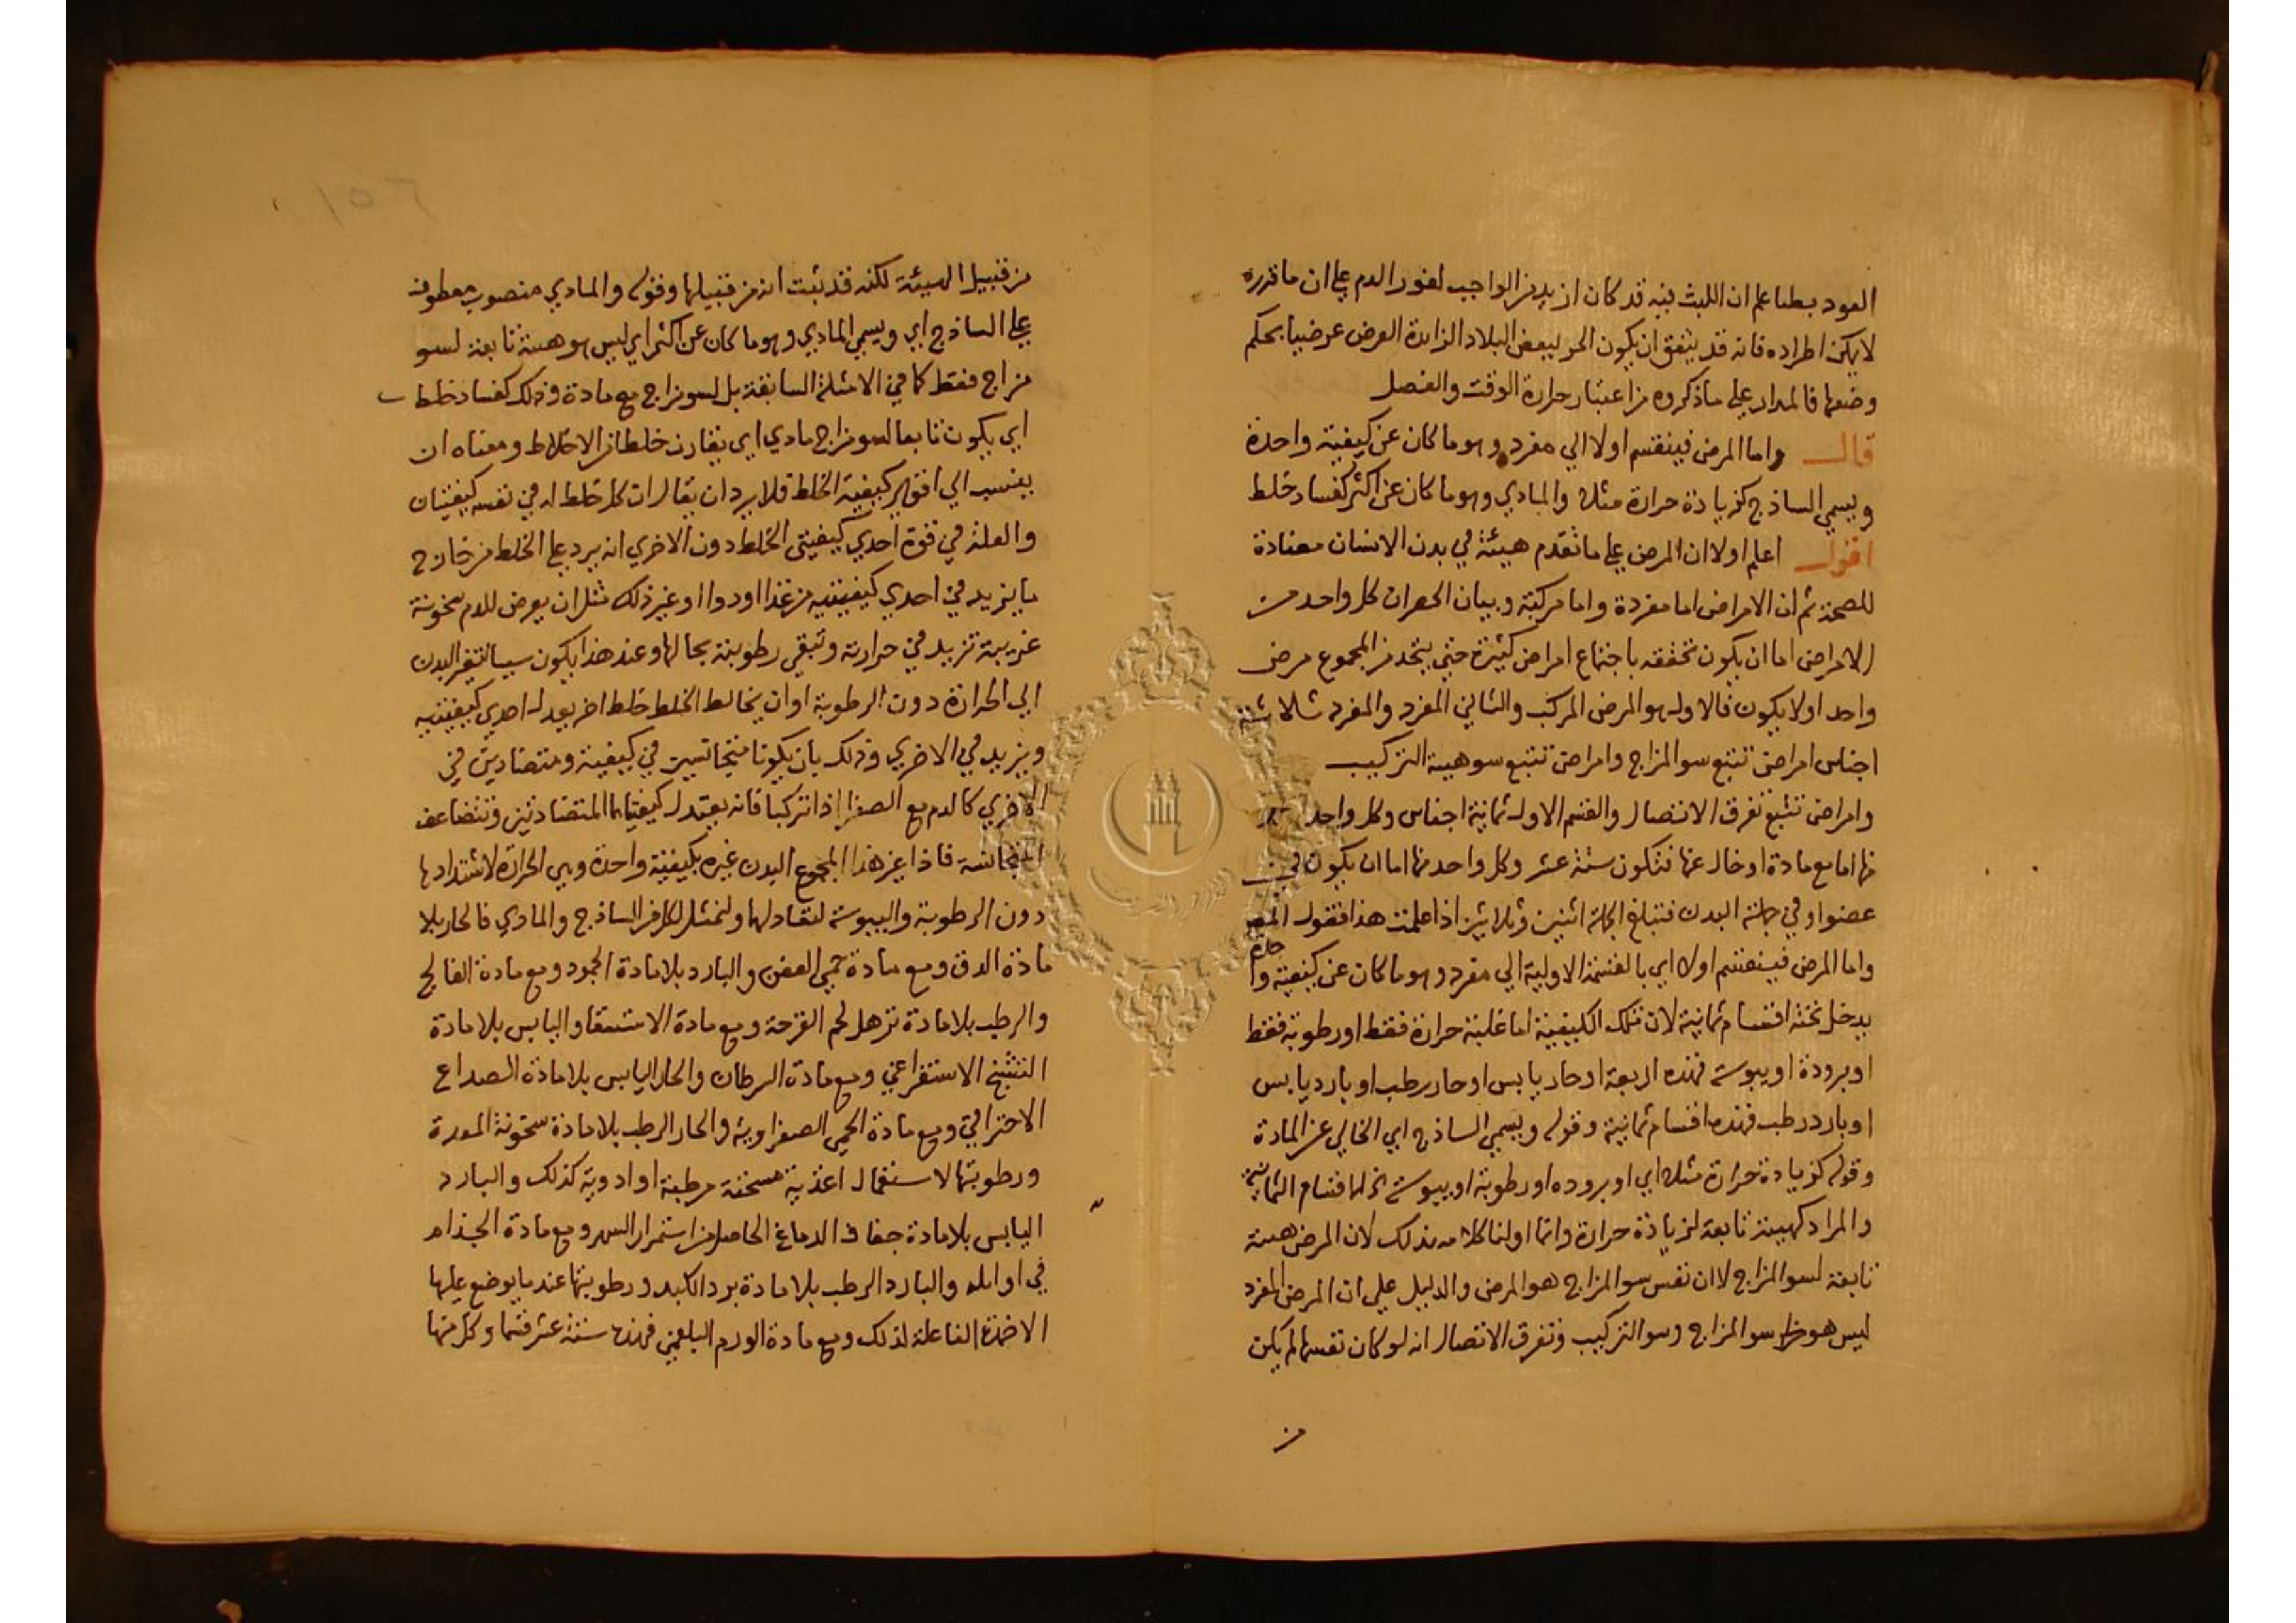 العود بطنا علم ان اللبث فيه قد كان ازيد من الواجب لغور الدم علي ان ما قرره
لا يمكن اطراده فانه قد يتفق ان يكون الحر لبعض البلاد الزايدة العرض عرضيا بحكم
وضعها فالمدار علي ما ذكروه من اعتبار حرارة الوقت والفصل
قال واما المرض فينقسم اولا الي مفرد وهو ما كان عن كيفية واحدة
ويسمي الساذج كزيادة حرارة مثلا والمادي وهو ما كان عن اكثر كفساد خلط
اقول اعلم اولا ان المرض علي ما تقدم هيئة في بدن الانسان مضادة
للصحة ثم ان الامراض اما مفردة واما مركبة وبيان الحصر ان كل واحد من
الامراض اما ان يكون تحققه باجتماع امراض كثيرة حتي يتحد من المجموع مرض
واحد اولا يكون فالاول هو المرض المركب والثاني المفرد والمفرد ثلاثة
اجناس امراض تتبع سو المزاج وامراض تتبع سو هيية التركيب
وامراض تتبع تفرق الاتصال والقسم الاول ثمانية اجناس وكل واحد
منها اما مع مادة او خال عنها فتكون ستة عشر وكل واحد منها اما ان يكون في
عضو او في جملة البدن فتبلغ الجملة اثنين وثلاثين اذا علمت هذا فقول المص
واما المرض فينقسم اولا اي بالقسمة الاولية الي مفرد وهو ما كان عن كيفية واحدة
يدخل تحته اقسام ثمانية لان تلك الكيفية اما غلبة حرارة فقط او رطوبة فقط
او برودة او يبوسة فهذه اربعة او حار يابس او حار رطب او بارد يابس
او بارد رطب فهذه اقسام ثمانية وقوله ويسمي الساذج اي الخالي عن المادة
وقوله كزيادة حرارة مثلا اي او بروده او رطوبة او يبوسة الي اخر الاقسام الثمانية
والمراد كهيئة تابعة لزيادة حرارة وانما اولنا كلامه بذلك لان المرض هيئة
تابعة لسو المزاج لا ان نفس سو المزاج هو المرض والدليل علي ان المرض المفرد
ليس هو سو المزاج وسو التركيب وتفرق الاتصال انه لو كان نفسها لم يكن
من
من قبيل الهيئة لكنه قد ثبت انه من قبيلها وقوله والمادي منصوب معطوف
علي الساذج اي ويسمي المادي وهو ما كان عن اكثر اي ليس هو هيئة تابعة لسو
مزاج فقط كما في الامثلة السابقة بل لسو مزاج مع مادة وذلك كفساد خلط
اي يكون تابعا لسو مزاج مادي اي يقارن خلطا من الاخلاط ومعناه ان
ينسب الي اقوي كيفية الخلط فلا يرد ان يقال ان كل خلط له في نفسه كيفيتان
والعلة في قوة احدي كيفيتي الخلط دون الاخري انه يرد علي الخلط من خارج
ما يزيد في احدي كيفيتيه من غذا او دوا او غير ذلك مثل ان يعرض للدم سخونة
غريبة تزيد في حرارته وتبقي رطوبته بحالها وعند هذا يكون سببا لتغير البدن
الي الحرارة دون الرطوبة او ان يخالط الخلط خلط اخر يعدل احدي كيفيتيه
ويزيد في الاخري وذلك بان يكونا متجانسين في كيفية ومتضادين في
الاخري كالدم مع الصفرا اذا تركبا فانه يعتدل كيفيتاهما المتضادتين وتتضاعف
المتجانسة فاذا غير هذا المجموع البدن غيره بكيفية واحدة وهي الحرارة لاشتدادها
دون الرطوبة واليبوسة لتعادلها ولنمثل لكل من الساذج والمادي فالحار بلا
مادة الدق ومع مادة حمي العفن والبارد بلا مادة الجمود ومع مادة الفالج
والرطب بلا مادة ترهل لحم القرحة ومع مادة الاستسقا واليابس بلا مادة
التشنج الاستفراغي ومع مادة السرطان والحار اليابس بلا مادة الصداع
الاحتراقي ومع مادة الحمي الصفراوية والحار الرطب بلا مادة سخونة المعدة
ورطوبتها لاستعمال اغذية مسخنة مرطبة او ادوية كذلك والبارد
اليابس بلا مادة جفاف الدماغ الحاصل من استمرار السهر ومع مادة الجذام
في اوايله والبارد الرطب بلا مادة برد الكبد ورطوبتها عند ما يوضع عليها
الاضمدة الفاعلة لذلك ومع مادة الورم البلغمي فهذه ستة عشر قسما وكل منها